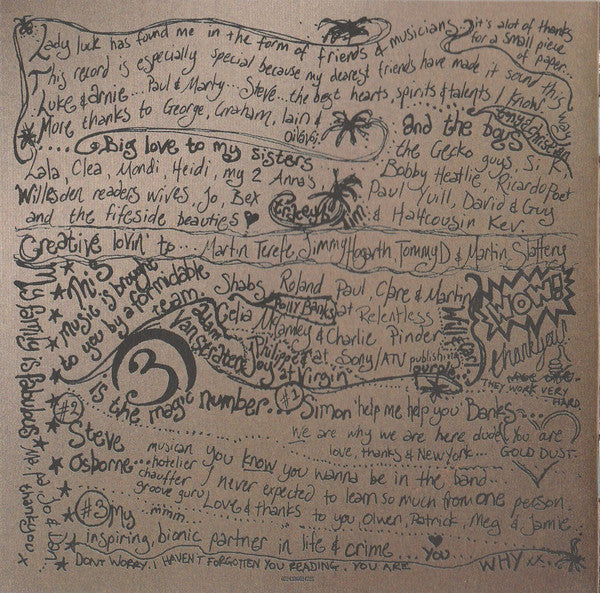 Lady luck has found me in the form of friends & musicians
it's alot of thanks
for a small piece
of paper...
This record is especially special because my dearest friends have made it sound this way
Luke & Arnie... Paul & Marty... Steve... the best hearts, spirits & talents I know!
More thanks to George, Graham, Iain &
...Big love to my sisters
and the boys
Lala, Clea, Mondi, Heidi, my 2 Anna's,
Willesden readers wives, Jo, Bex
and the fifeside beauties
the Gecko guys, Si K
Bobby Heatlie, Ricardo Poet
Paul Yull, David & Guy
& Halfcousin Kev.
Creative lovin' to... Martin Terefe, Jimmy Hogarth, Tommy D & Martin Slattery
My family is fabulous
I thankyou x
This
music is brought
to you by a formidable
team
Shabs, Roland, Paul, Clare & Martin
Polly Banks at Relentless
Celia McCamley & Charlie Pinder
Adam Van Straten
Philippe & Joy at Virgin
at Sony/ATV publishing
purple
WOW!
thankyou!
THEY WORK VERY
HARD
3
is the magic number...
#1 Simon 'help me help you' Banks...
We are why we are here dude. You are
love, thanks & New York... GOLD DUST.
#2
Steve
Osborne...
musician
hotelier
chauffer
groove guru
mmm...
you know you wanna be in the band...
I never expected to learn so much from one person.
Love & thanks to you, Olwen, Patrick, Meg & Jamie...
#3 My
inspiring, bionic partner in life & crime... You
DONT WORRY.. I HAVEN'T FORGOTTEN YOU READING. YOU ARE WHY